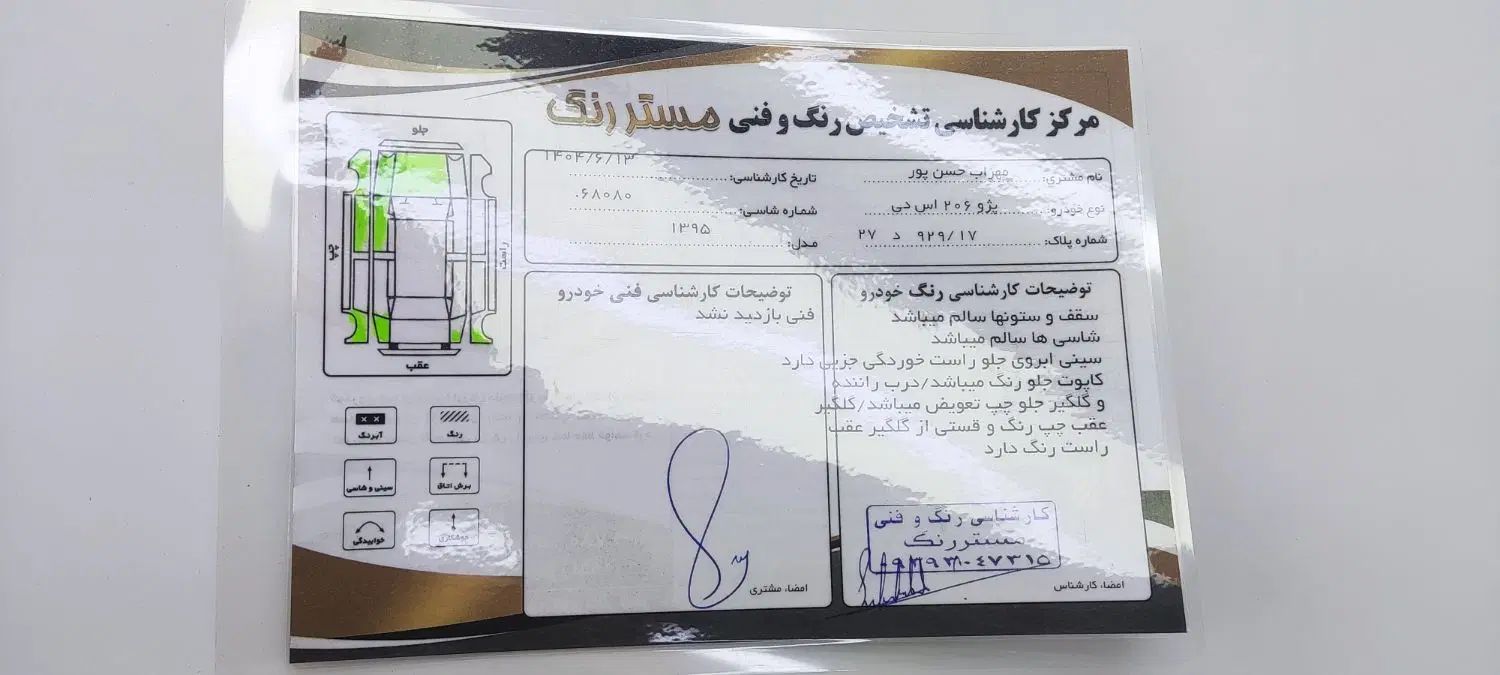 مرکز کارشناسی تشخیص رنگ و فنی مستر رنگ
نام مشتری: مهراب حسن پور
تاریخ کارشناسی: ۱۴۰۴/۶/۱۳
نوع خودرو: پژو ۲۰۶ اس دی
شماره شاسی: ۰۶۸۰۸۰
شماره پلاک: ۹۲۹/۱۷ د ۲۷
مدل: ۱۳۹۵
توضیحات کارشناسی رنگ خودرو
سقف و ستونها سالم میباشد
شاسی ها سالم میباشد
سینی ابروی جلو راست خوردگی جزیی دارد
کاپوت جلو رنگ میباشد/درب راننده
و گلگیر جلو چپ تعویض میباشد/گلگیر
عقب چپ رنگ و قستی از گلگیر عقب
راست رنگ دارد
کارشناسی رنگ و فنی
مستررنگ
امضاء کارشناس
توضیحات کارشناسی فنی خودرو
فنی بازدید نشد
امضاء مشتری
جلو
راست
چپ
عقب
رنگ
آبرنگ
برش اتاق
سینی و شاسی
جوشکاری
خوابیدگی